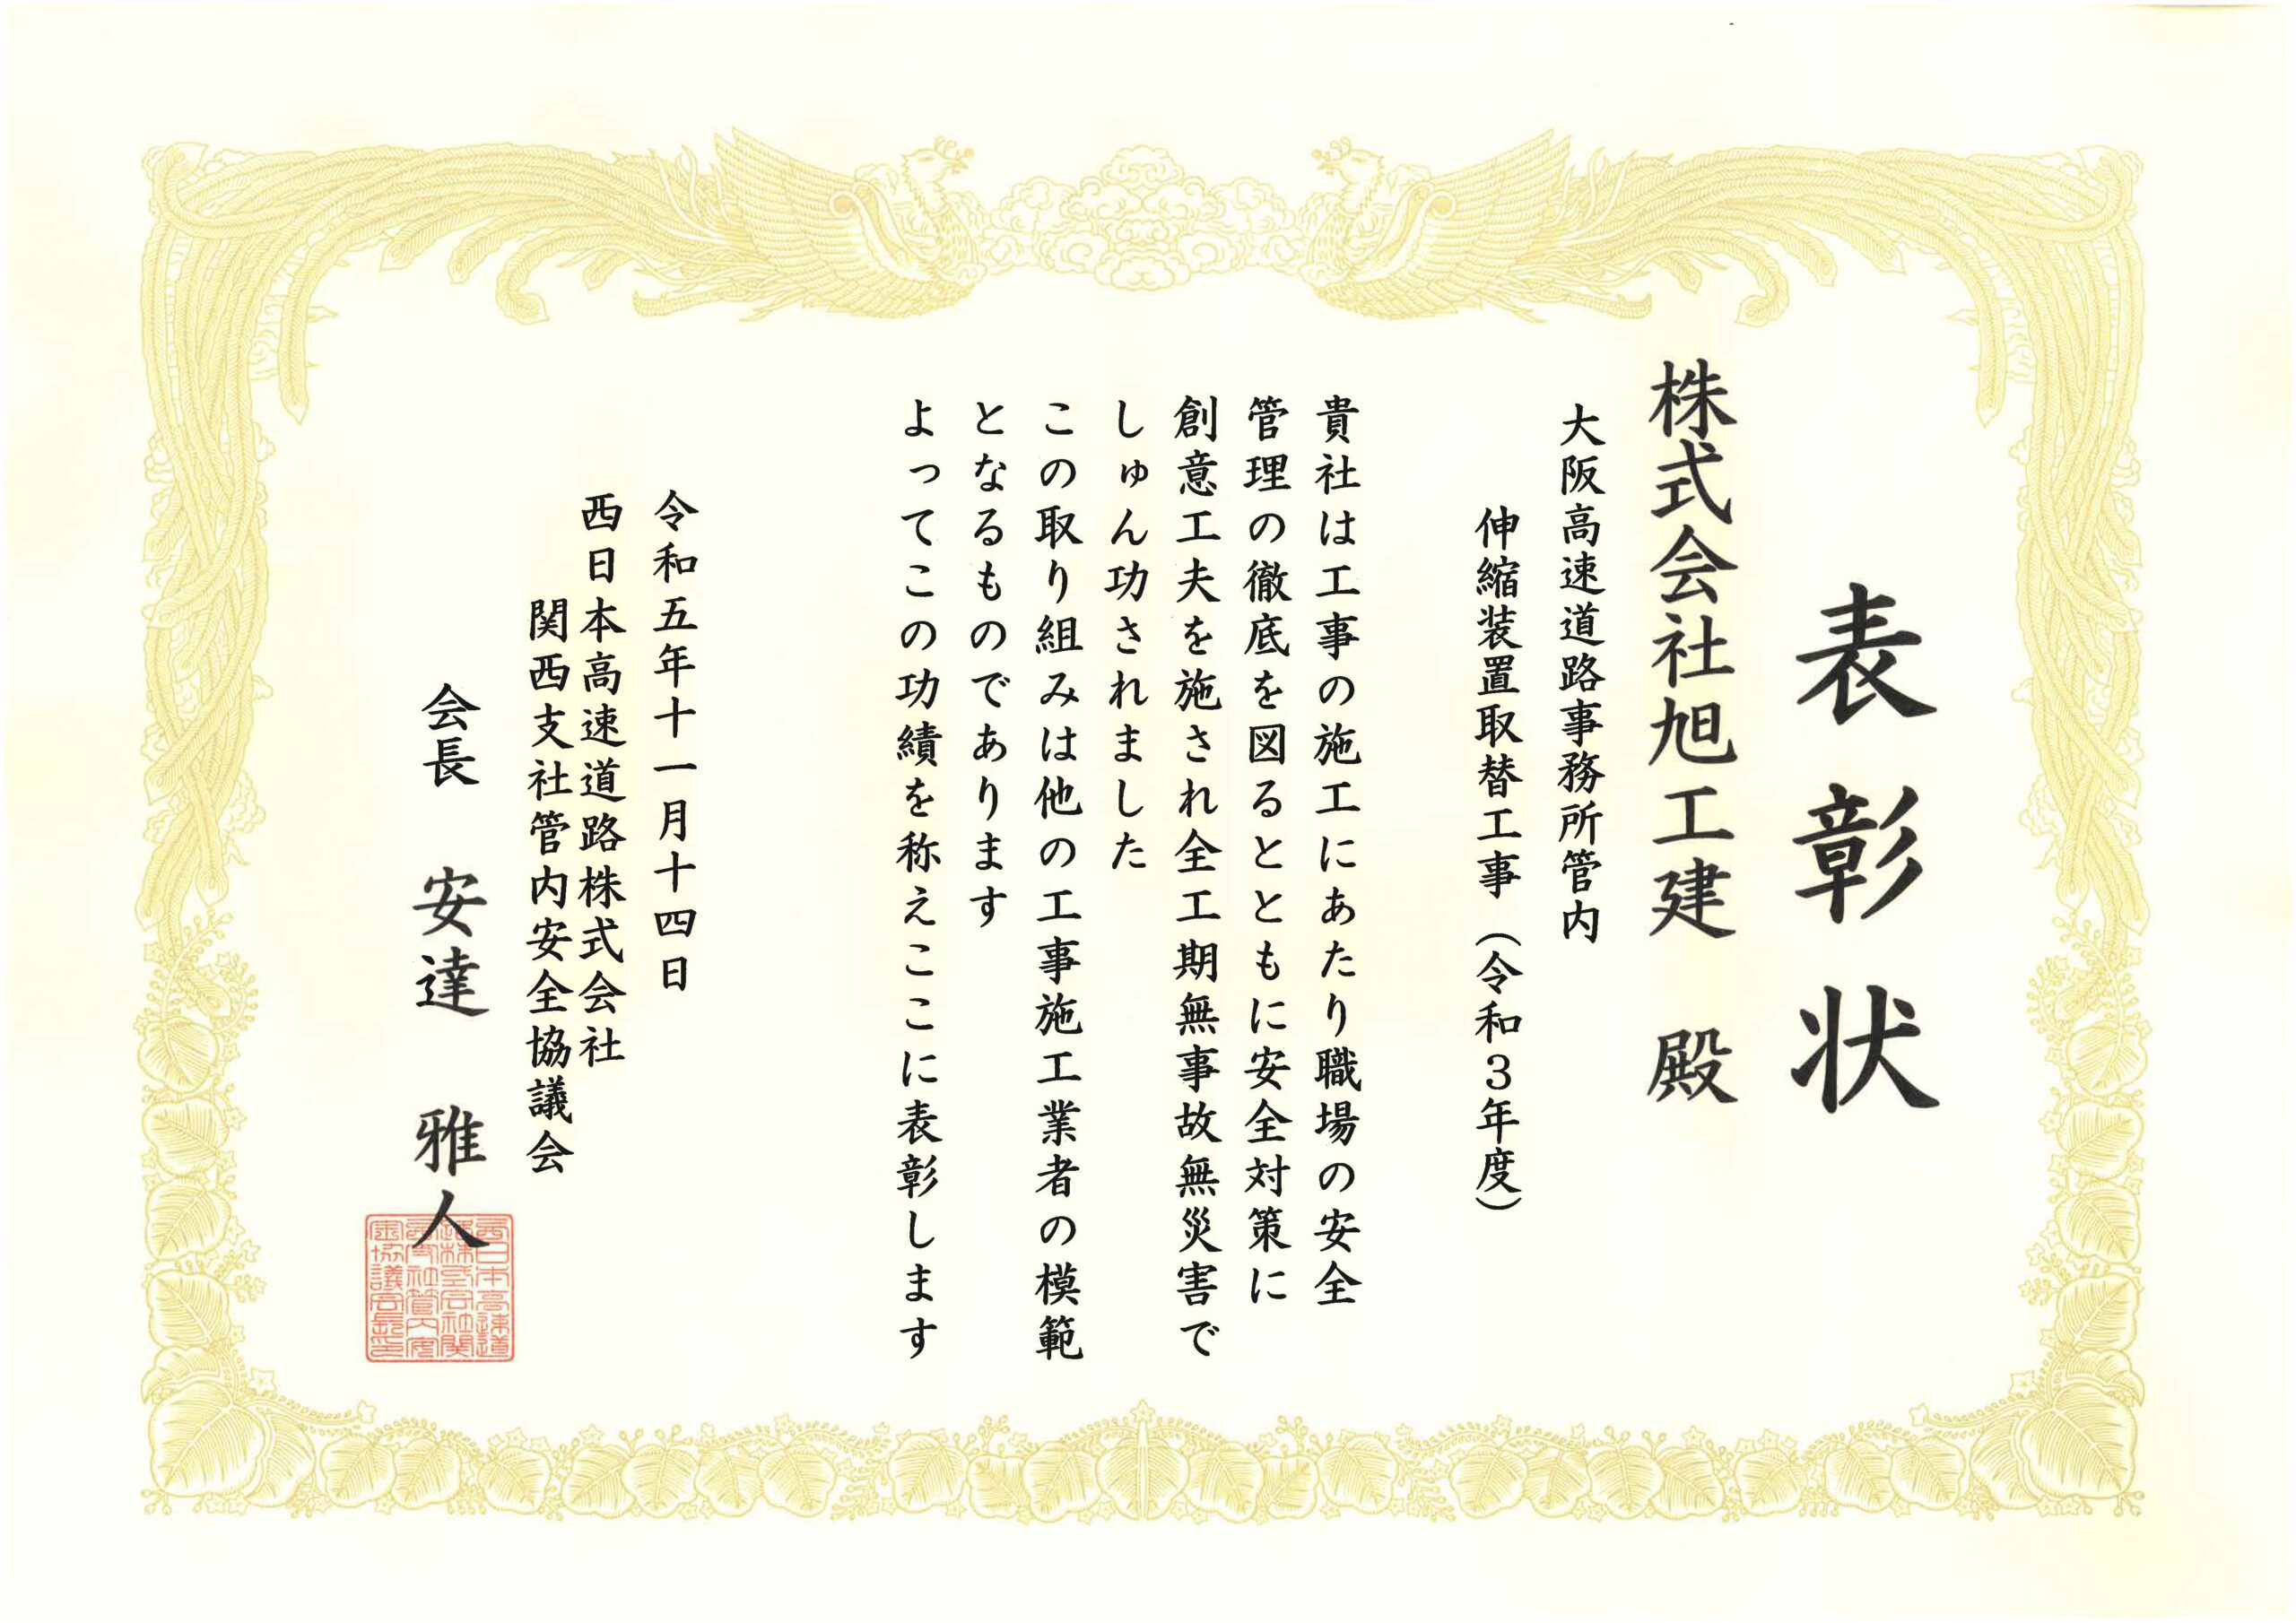 表彰状
株式会社旭工建 殿
大阪高速道路事務所管内
伸縮装置取替工事（令和３年度）
貴社は工事の施工にあたり職場の安全
管理の徹底を図るとともに安全対策に
創意工夫を施され全工期無事故無災害で
しゅん功されました
この取り組みは他の工事施工業者の模範
となるものであります
よってこの功績を称えここに表彰します
令和五年十一月十四日
西日本高速道路株式会社
関西支社管内安全協議会
会長 安達 雅人
西日本高速道
路株式会社関
西支社管内安
全協議会長印